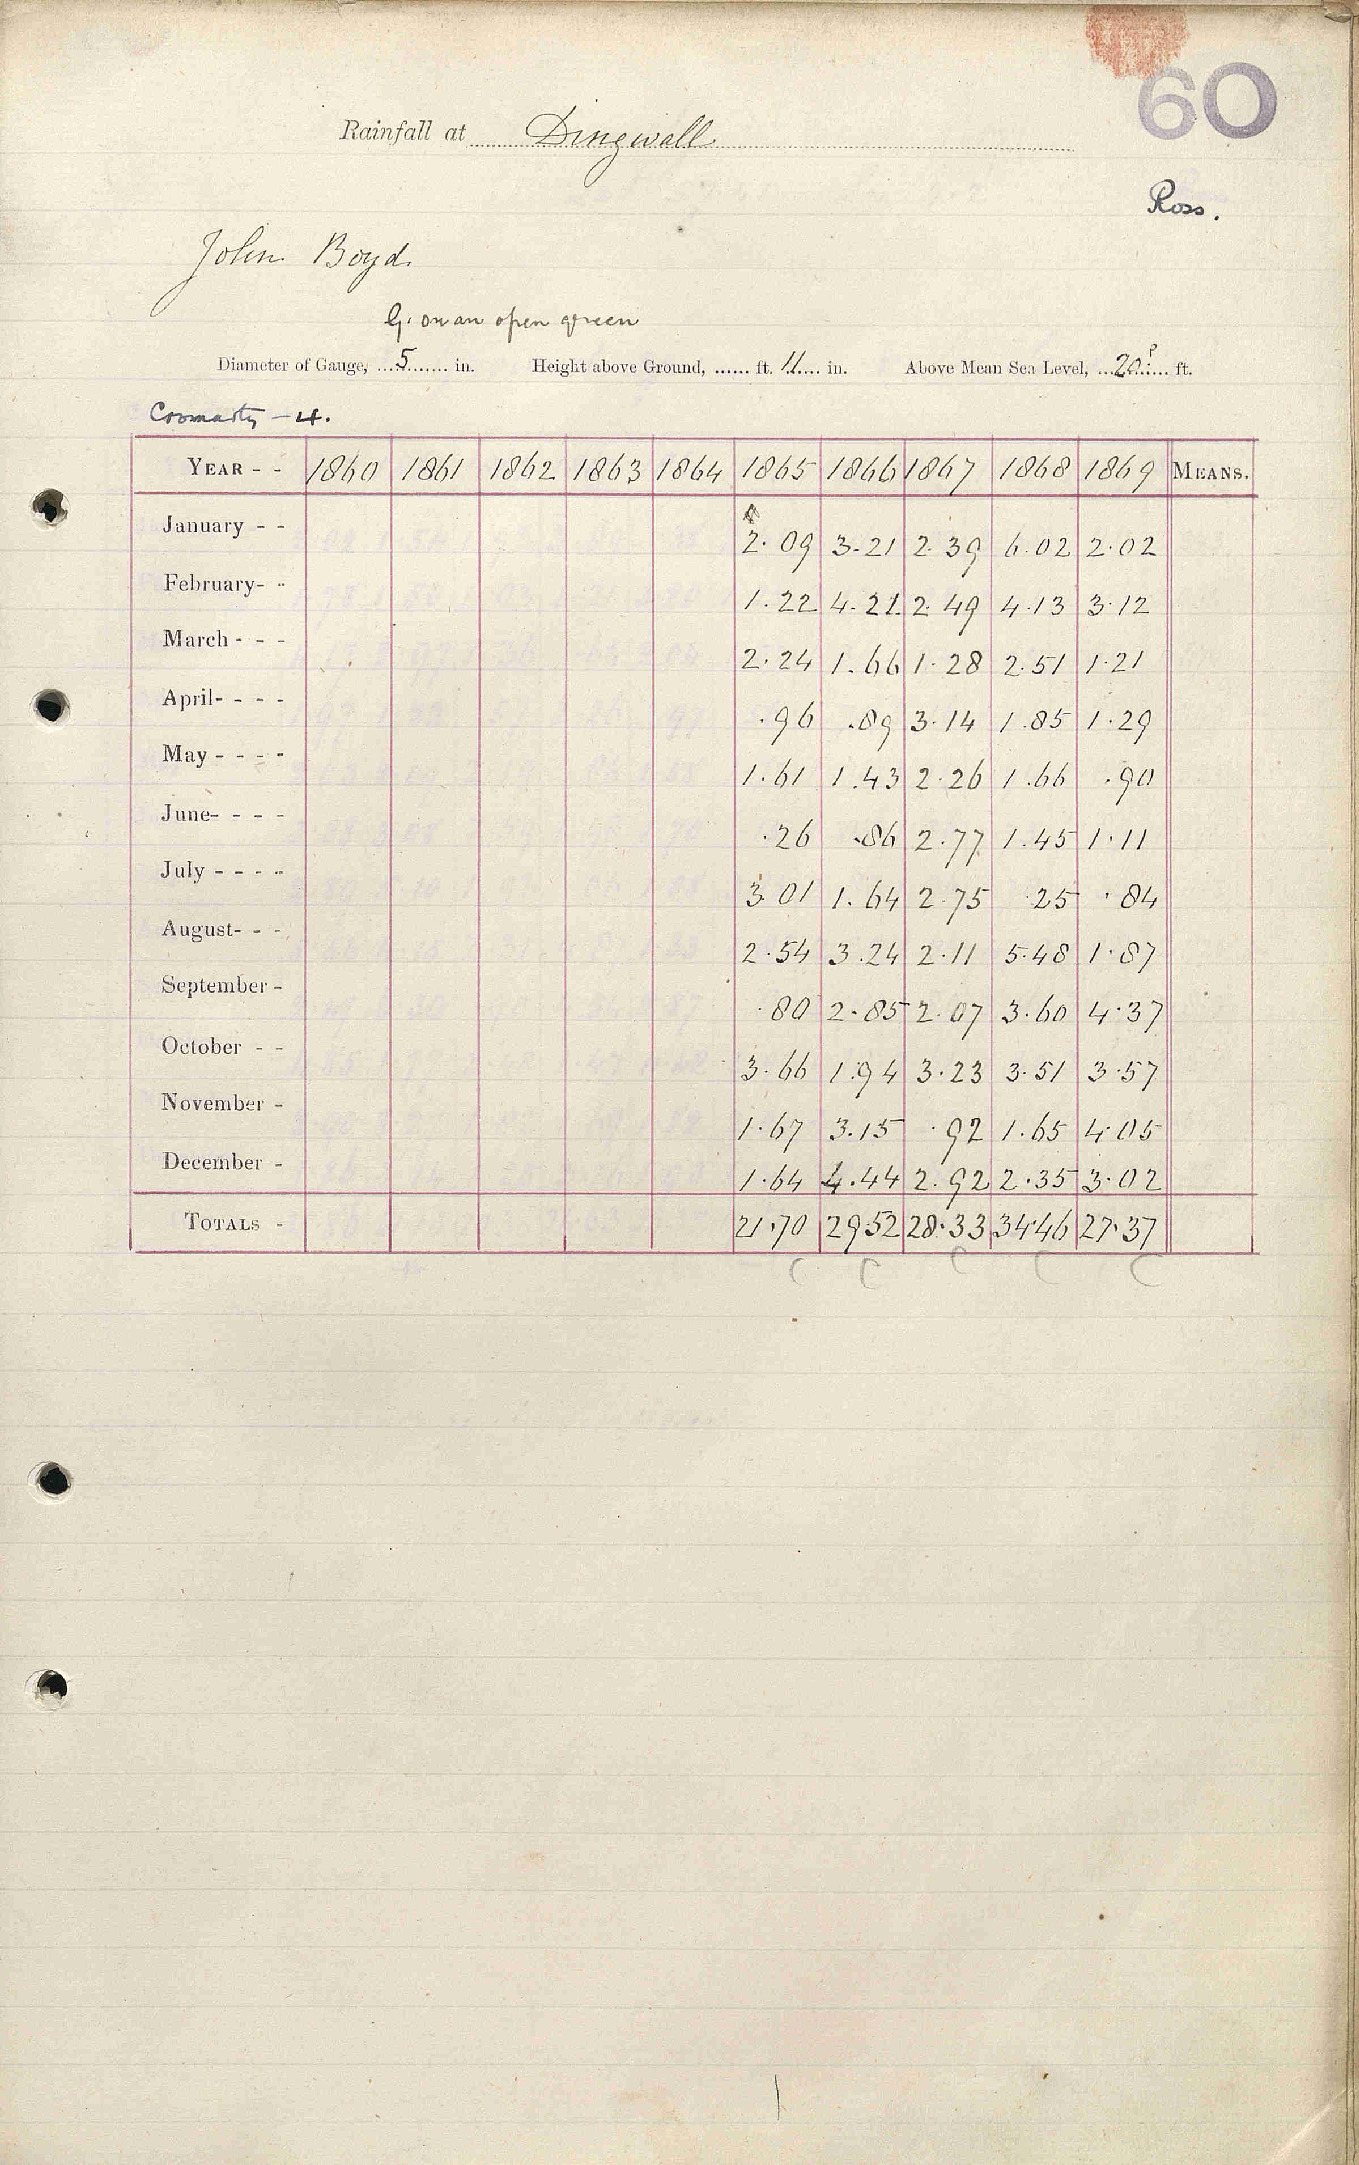 60
Rainfall at Dingwall
Ross.
John Boyd.
G. on an open green
Diameter of Gauge, 5 in. Height above Ground, ft. 11 in. Above Mean Sea Level, 20? ft.
Cromarty – 4.
YEAR - - 1860 1861 1862 1863 1864 1865 1866 1867 1868 1869 MEANS.
January - - 2.09 3.21 2.39 6.02 2.02
February- - 1.22 4.21 2.49 4.13 3.12
March - - - 2.24 1.66 1.28 2.51 1.21
April- - - - .96 .89 3.14 1.85 1.29
May - - - - 1.61 1.43 2.26 1.66 .90
June- - - - .26 .86 2.77 1.45 1.11
July - - - - 3.01 1.64 2.75 .25 .84
August- - - 2.54 3.24 2.11 5.48 1.87
September - .80 2.85 2.07 3.60 4.37
October - - 3.66 1.94 3.23 3.51 3.57
November - 1.67 3.15 .92 1.65 4.05
December - 1.64 4.44 2.92 2.35 3.02
TOTALS - 21.70 29.52 28.33 34.46 27.37
C C C C C